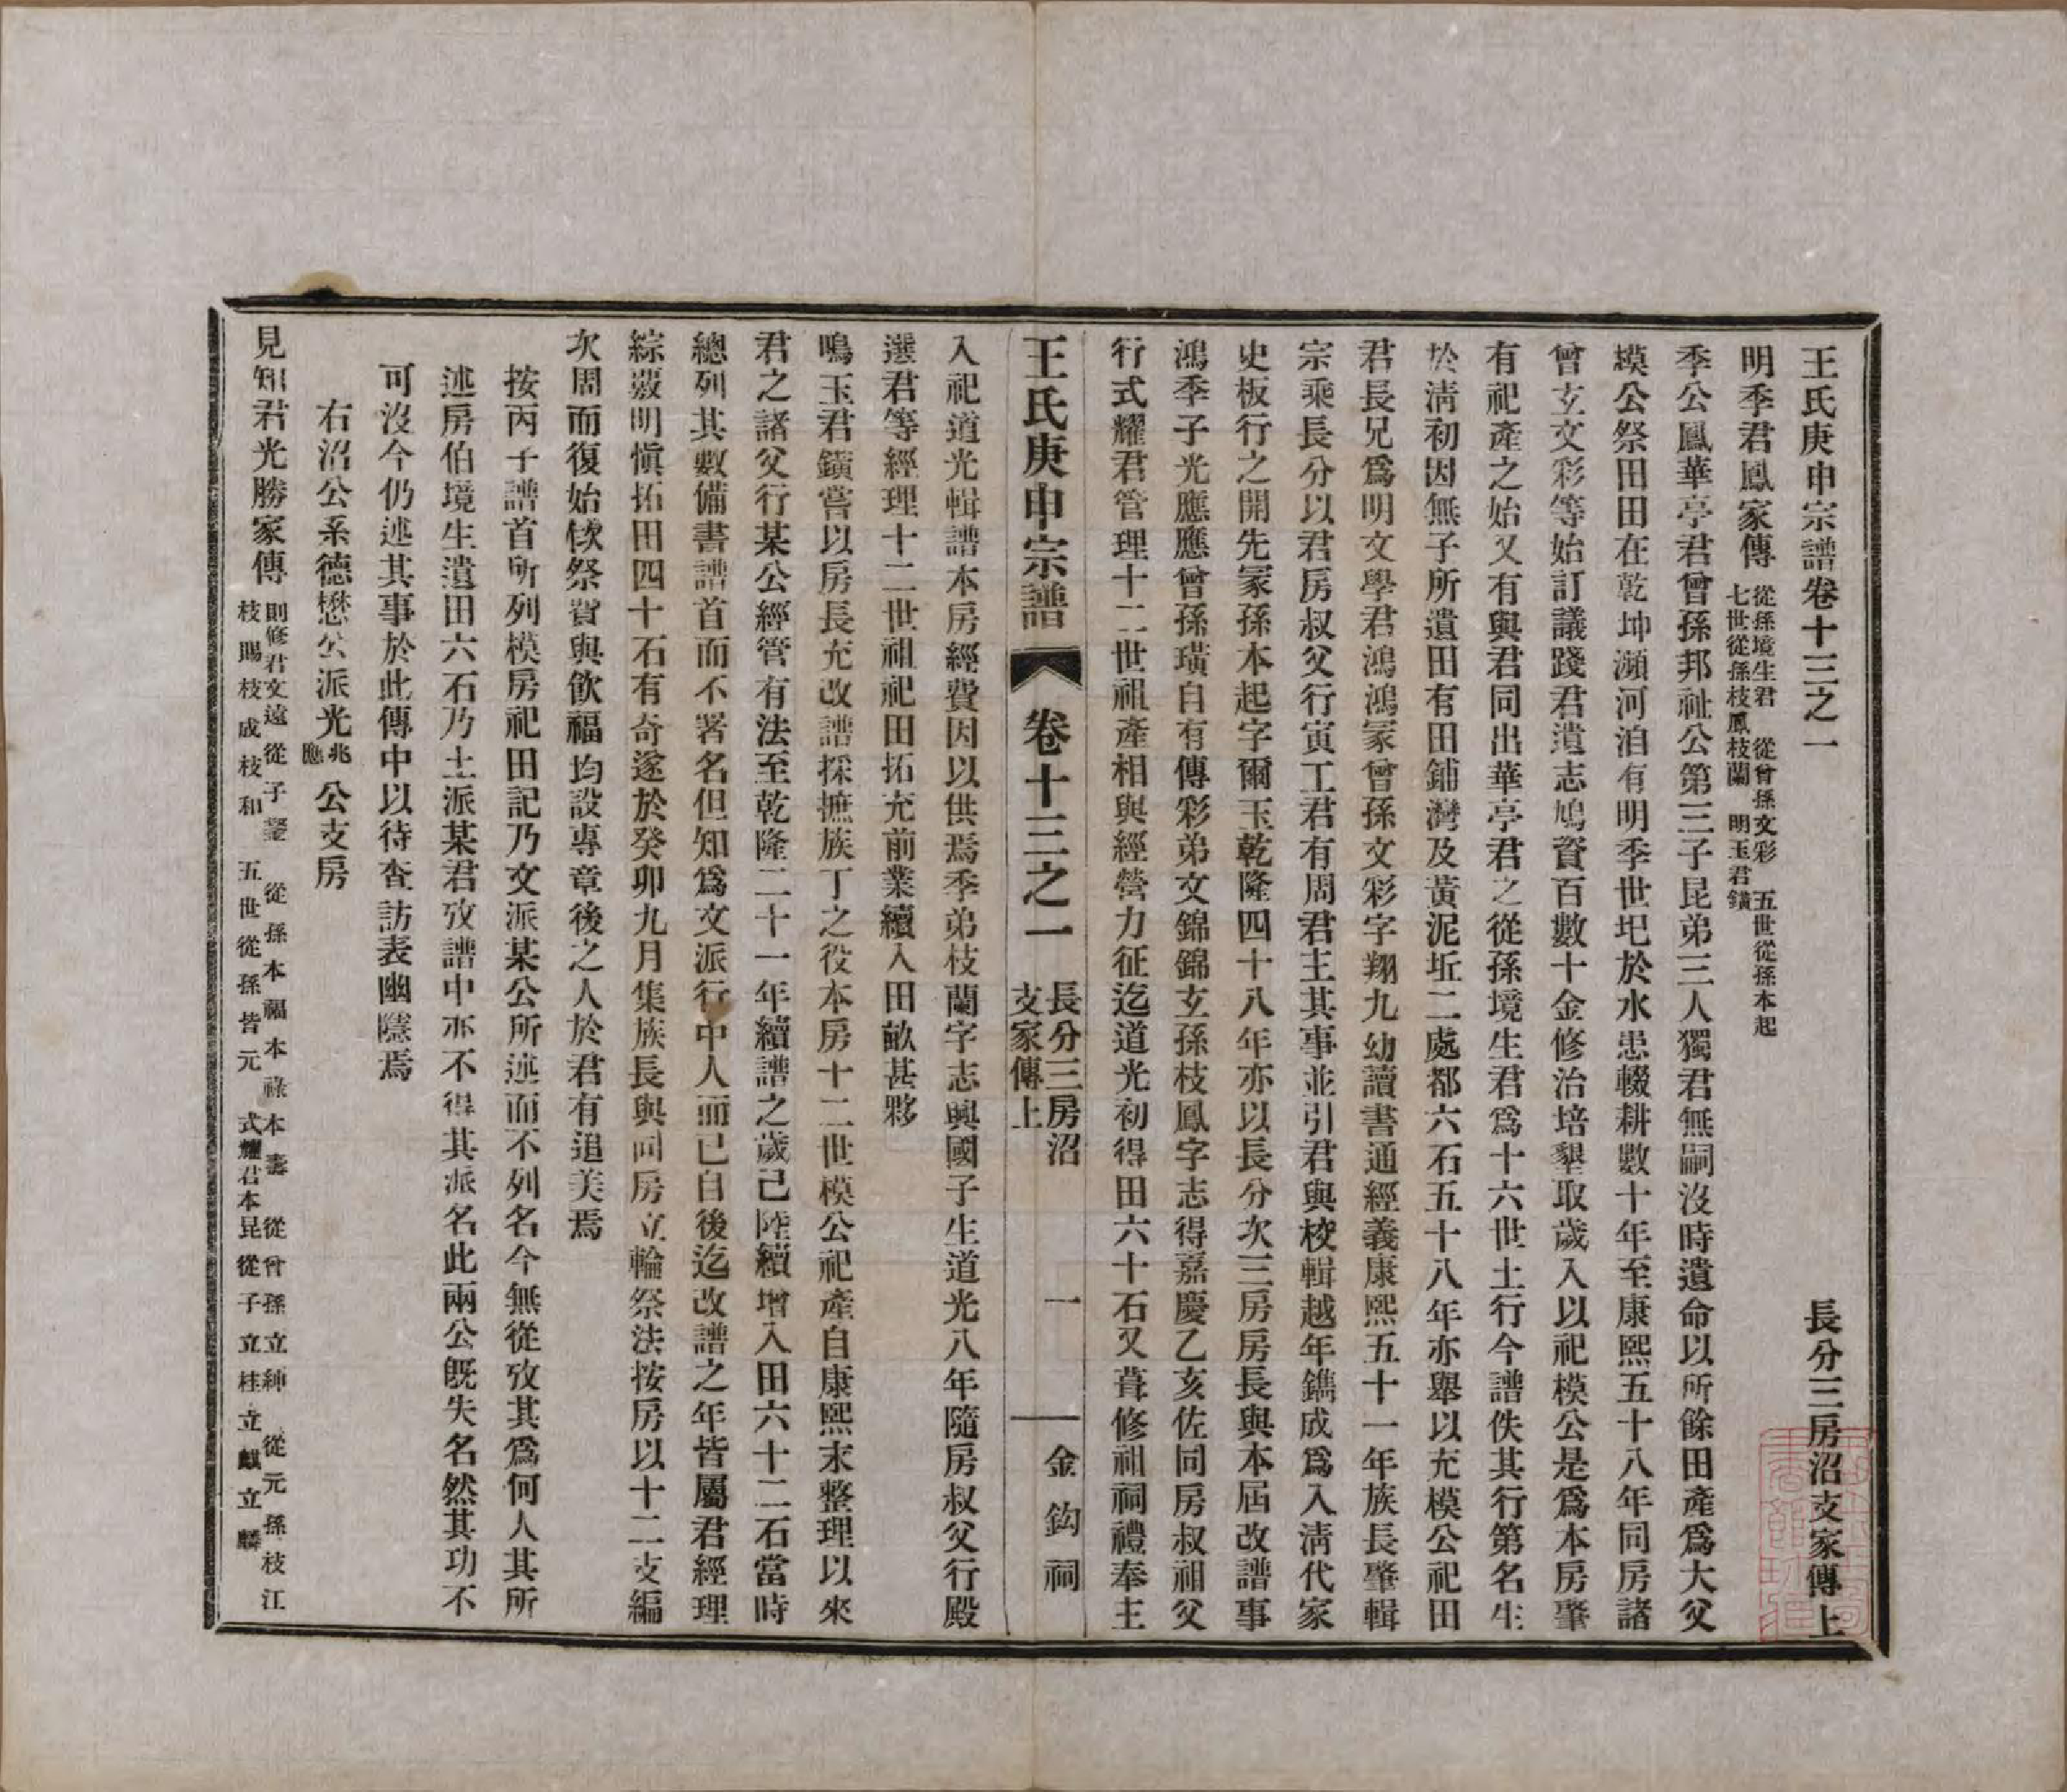 王氏庚申宗譜卷十三之一　長分三房沼支家傳上
明季君鳳家傳 從孫境生君　從曾孫文彩　五世從孫本起
七世從孫枝鳳枝蘭　明玉君鐄
季公鳳華亭君曾孫邦祉公第三子昆弟三人獨君無嗣沒時遺命以所餘田產爲大父
模公祭田田在乾坤瀕河洎有明季世圯於水患輟耕數十年至康熙五十八年同房諸
曾玄文彩等始訂議踐君遺志鳩資百數十金修治培墾取歲入以祀模公是爲本房肇
有祀產之始又有與君同出華亭君之從孫境生君爲十六世士行今譜佚其行第名生
於淸初因無子所遺田有田鋪灣及黃泥坵二處都六石五十八年亦舉以充模公祀田
君長兄爲明文學君鴻鴻冡曾孫文彩字翔九幼讀書通經義康熙五十一年族長肇輯
宗乘長分以君房叔父行寅工君有周君主其事並引君與校輯越年鐫成爲入淸代家
史板行之開先冡孫本起字爾玉乾隆四十八年亦以長分次三房房長與本屆改譜事
鴻季子光應應曾孫璜自有傳彩弟文錦錦玄孫枝鳳字志得嘉慶乙亥佐同房叔祖父
行式耀君管理十二世祖產相與經營力征迄道光初得田六十石又葺修祖祠禮奉主
王氏庚申宗譜　卷十三之一　長分三房沼
支家傳上　一　金鈎祠
入祀道光輯譜本房經費因以供焉季弟枝蘭字志興國子生道光八年隨房叔父行殿
選君等經理十二世祖祀田拓充前業續入田畝甚夥
鳴玉君鐄嘗以房長充改譜採摭族丁之役本房十二世模公祀產自康熙末整理以來
君之諸父行某公經管有法至乾隆二十一年續譜之歲己陸續增入田六十二石當時
總列其數備書譜首而不署名但知爲文派行中人而已自後迄改譜之年皆屬君經理
綜覈明愼拓田四十石有奇遂於癸卯九月集族長與同房立輪祭法按房以十二支編
次周而復始欵祭費與飮福均設專章後之人於君有追美焉
按丙子譜首所列模房祀田記乃文派某公所述而不列名今無從攷其爲何人其所
述房伯境生遺田六石乃土派某君攷譜中亦不得其派名此兩公旣失名然其功不
可沒今仍述其事於此傳中以待查訪表幽隱焉
右沼公系德懋公派光兆
應公支房
見知君光勝家傳 則修君文遠從子  　從孫本福本祿本壽　從曾孫立紳　從元孫枝江
枝賜枝成枝和　五世從孫皆元　式耀君本昆從子立桂立麒立麟